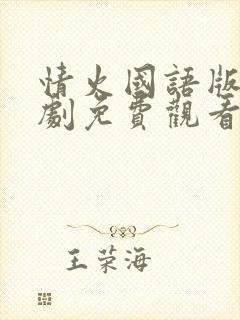 情火國語版
劇免費觀看
王荣海